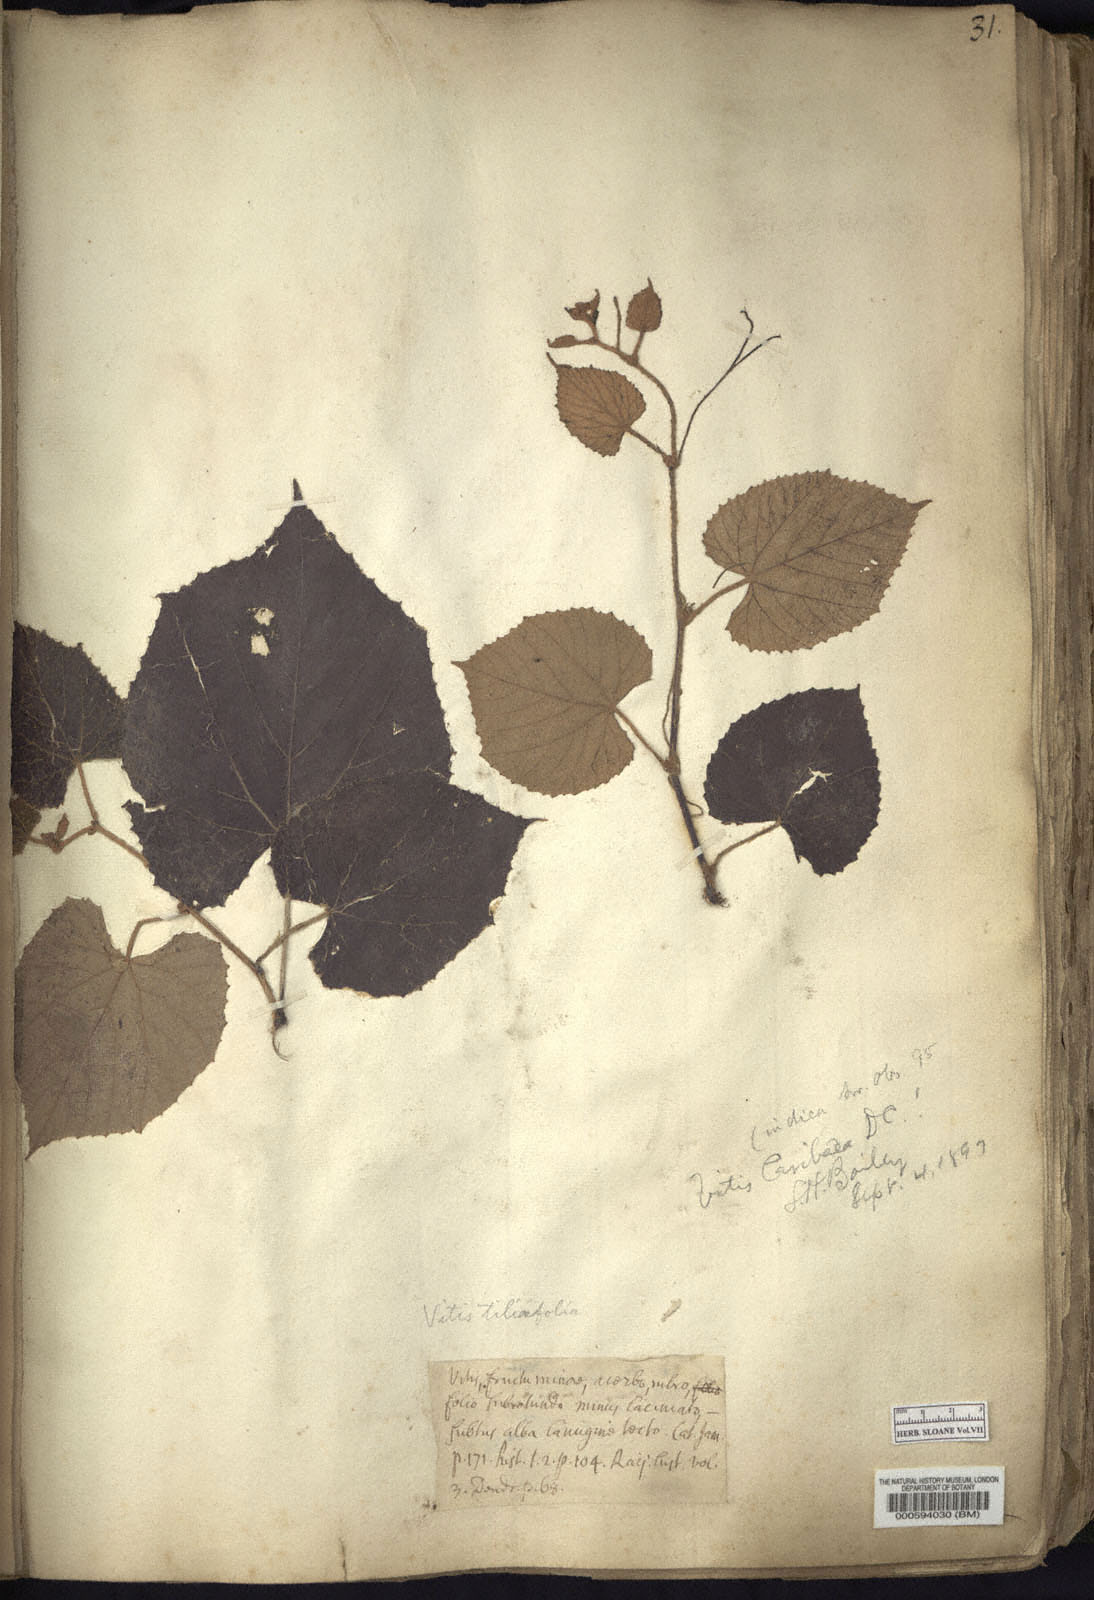 31.
(indica Sw. Obs. 95
Vitis Caribaea DC.!
L.H. Bailey
Sept. 4, 1897
Vitis tiliaefolia
Vitis, fructu minore, acerbo, rubro,
folio subrotundo minus laciniato
subtus alba lanugine tecto. Cat. Jam.
p. 171. hist. t. 2. p. 104. Raij. hist. vol.
3. Dendr. p. 68.
mm 1 2 3
HERB. SLOANE Vol.VII
THE NATURAL HISTORY MUSEUM, LONDON
DEPARTMENT OF BOTANY
000594030 (BM)